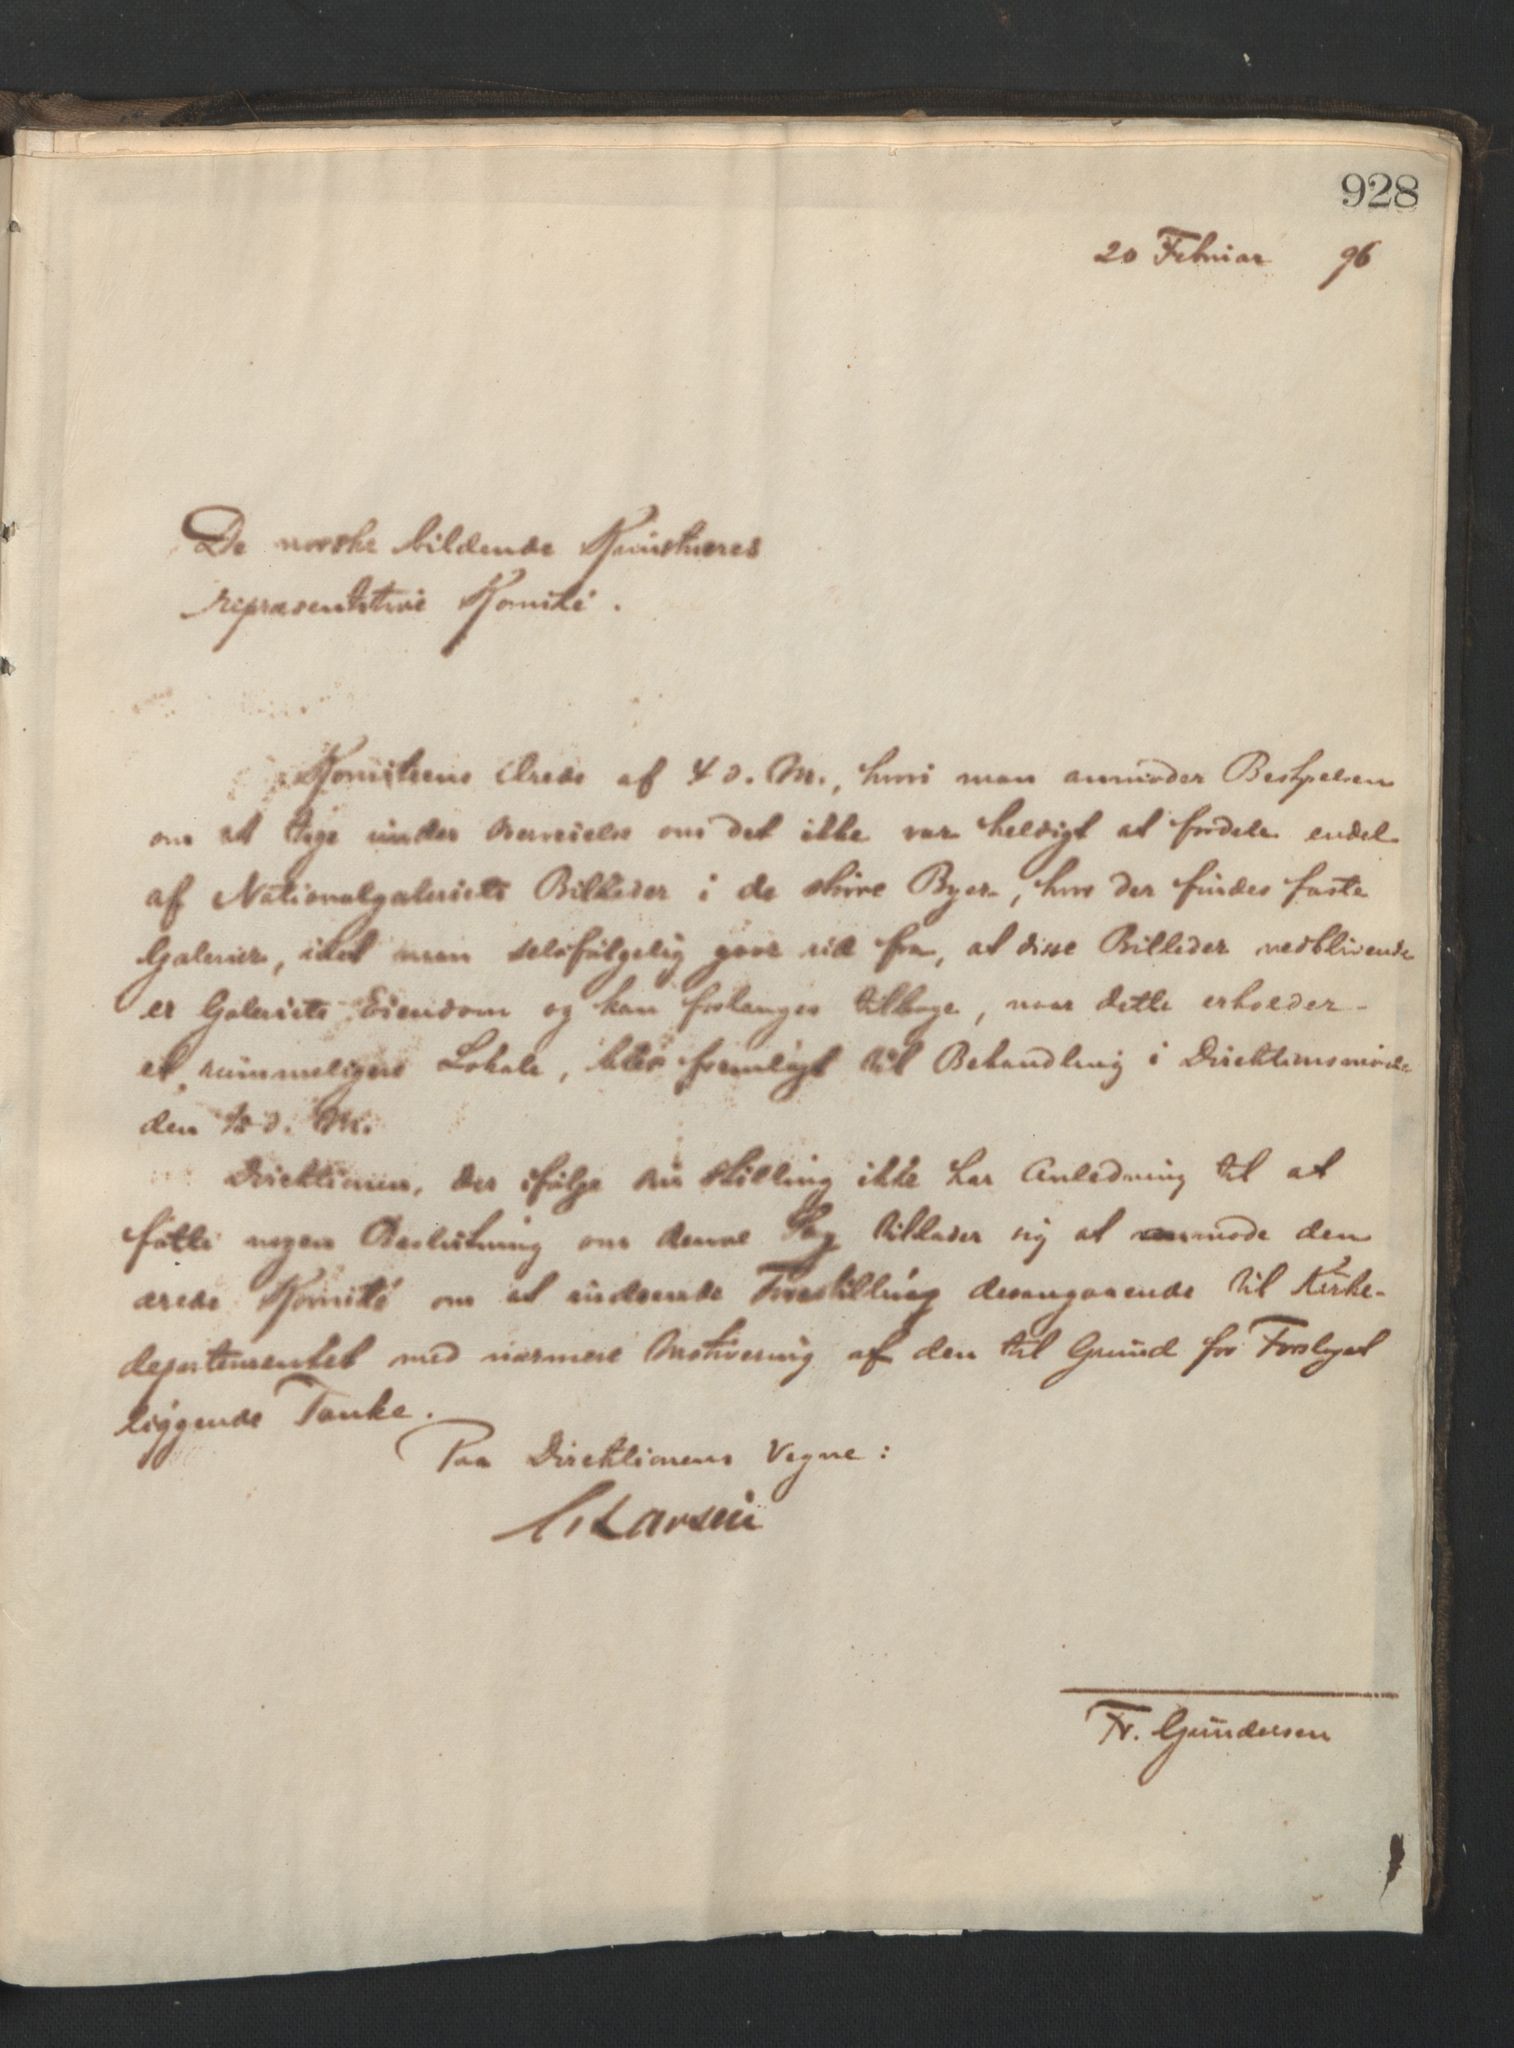 928
20 Februar 96
De norske bildende Kunstneres
repræsentative Komité.
Komiteens ærede af 4 d. M., hvori man anmoder Bestyrelsen
om at tage under Overveielse om det ikke var heldigt at fordele endel
af Nationalgaleriets Billeder i de større Byer, hvor der findes faste
Galerier, idet man selvfølgelig gaar ud fra, at disse Billeder vedblivende
er Galeriets Eiendom og kan forlanges tilbage, naar dette erholder
et rummeligere Lokale, blev fremlagt til Behandling i Direktionsmøde
den d. M.
Direktionen, der ifølge sin Stilling ikke har Anledning til at
fatte nogen Beslutning om denne Sag tillader sig at anmode den
ærede Komité om at indsende Forestilling desangaaende til Kirke-
departementet med nærmere Motivering af den til Grund for Forslaget
liggende Tanke.
Paa Direktionens Vegne:
C. Larsen
Fr. Gundersen